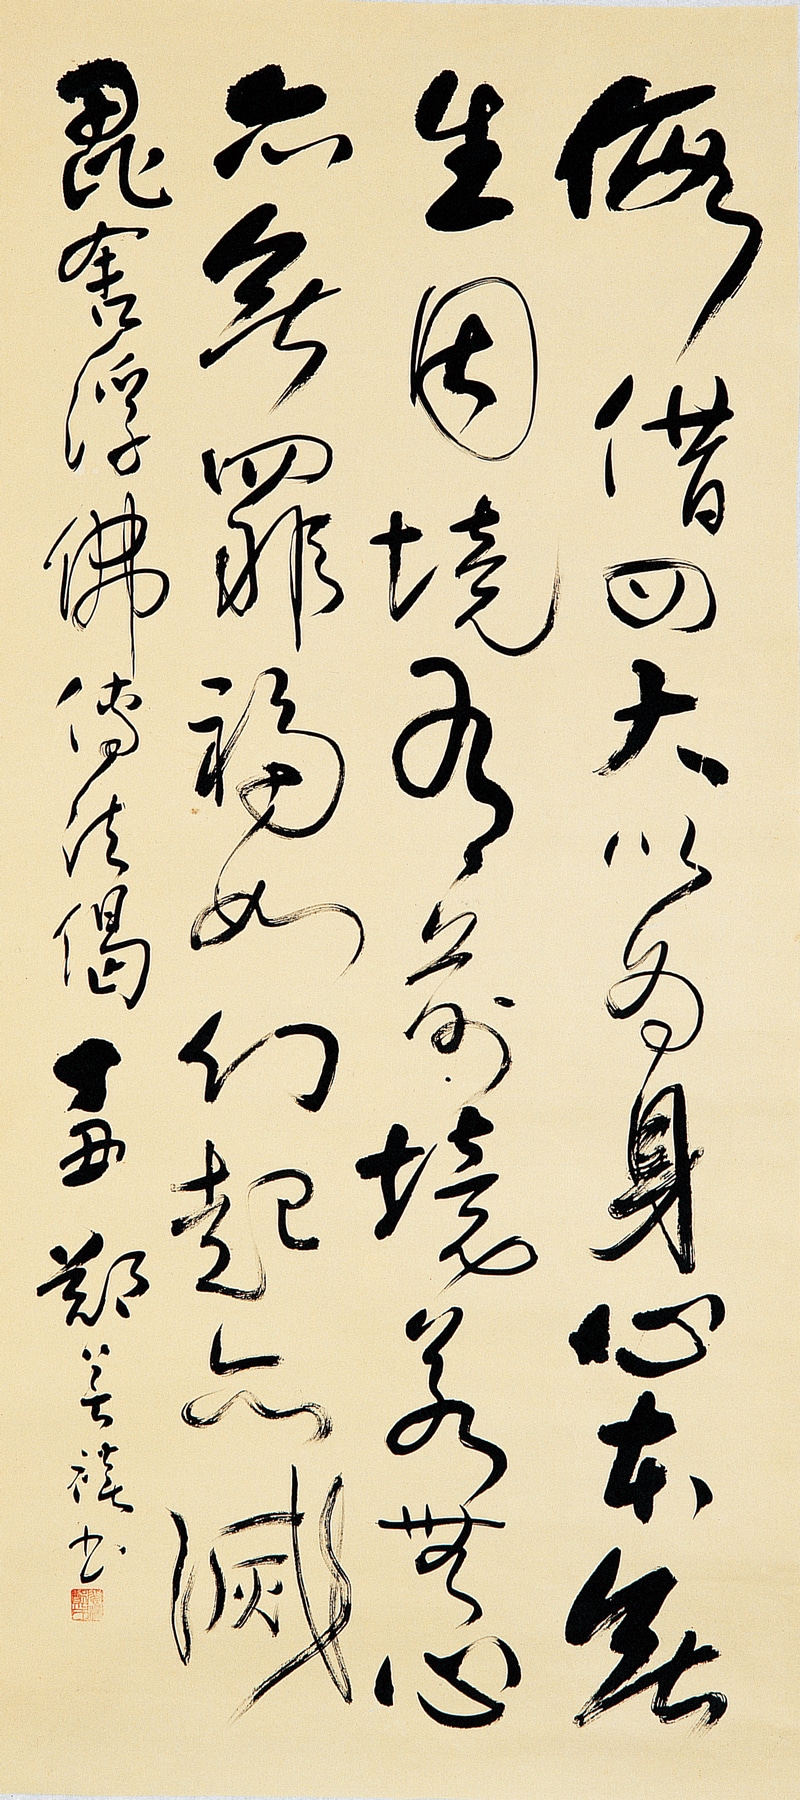 假借四大以為身心本無
生因境有前境若無心
亦無罪福如幻起亦滅
毘舍浮佛傳法偈 丁丑 鄭善禧書